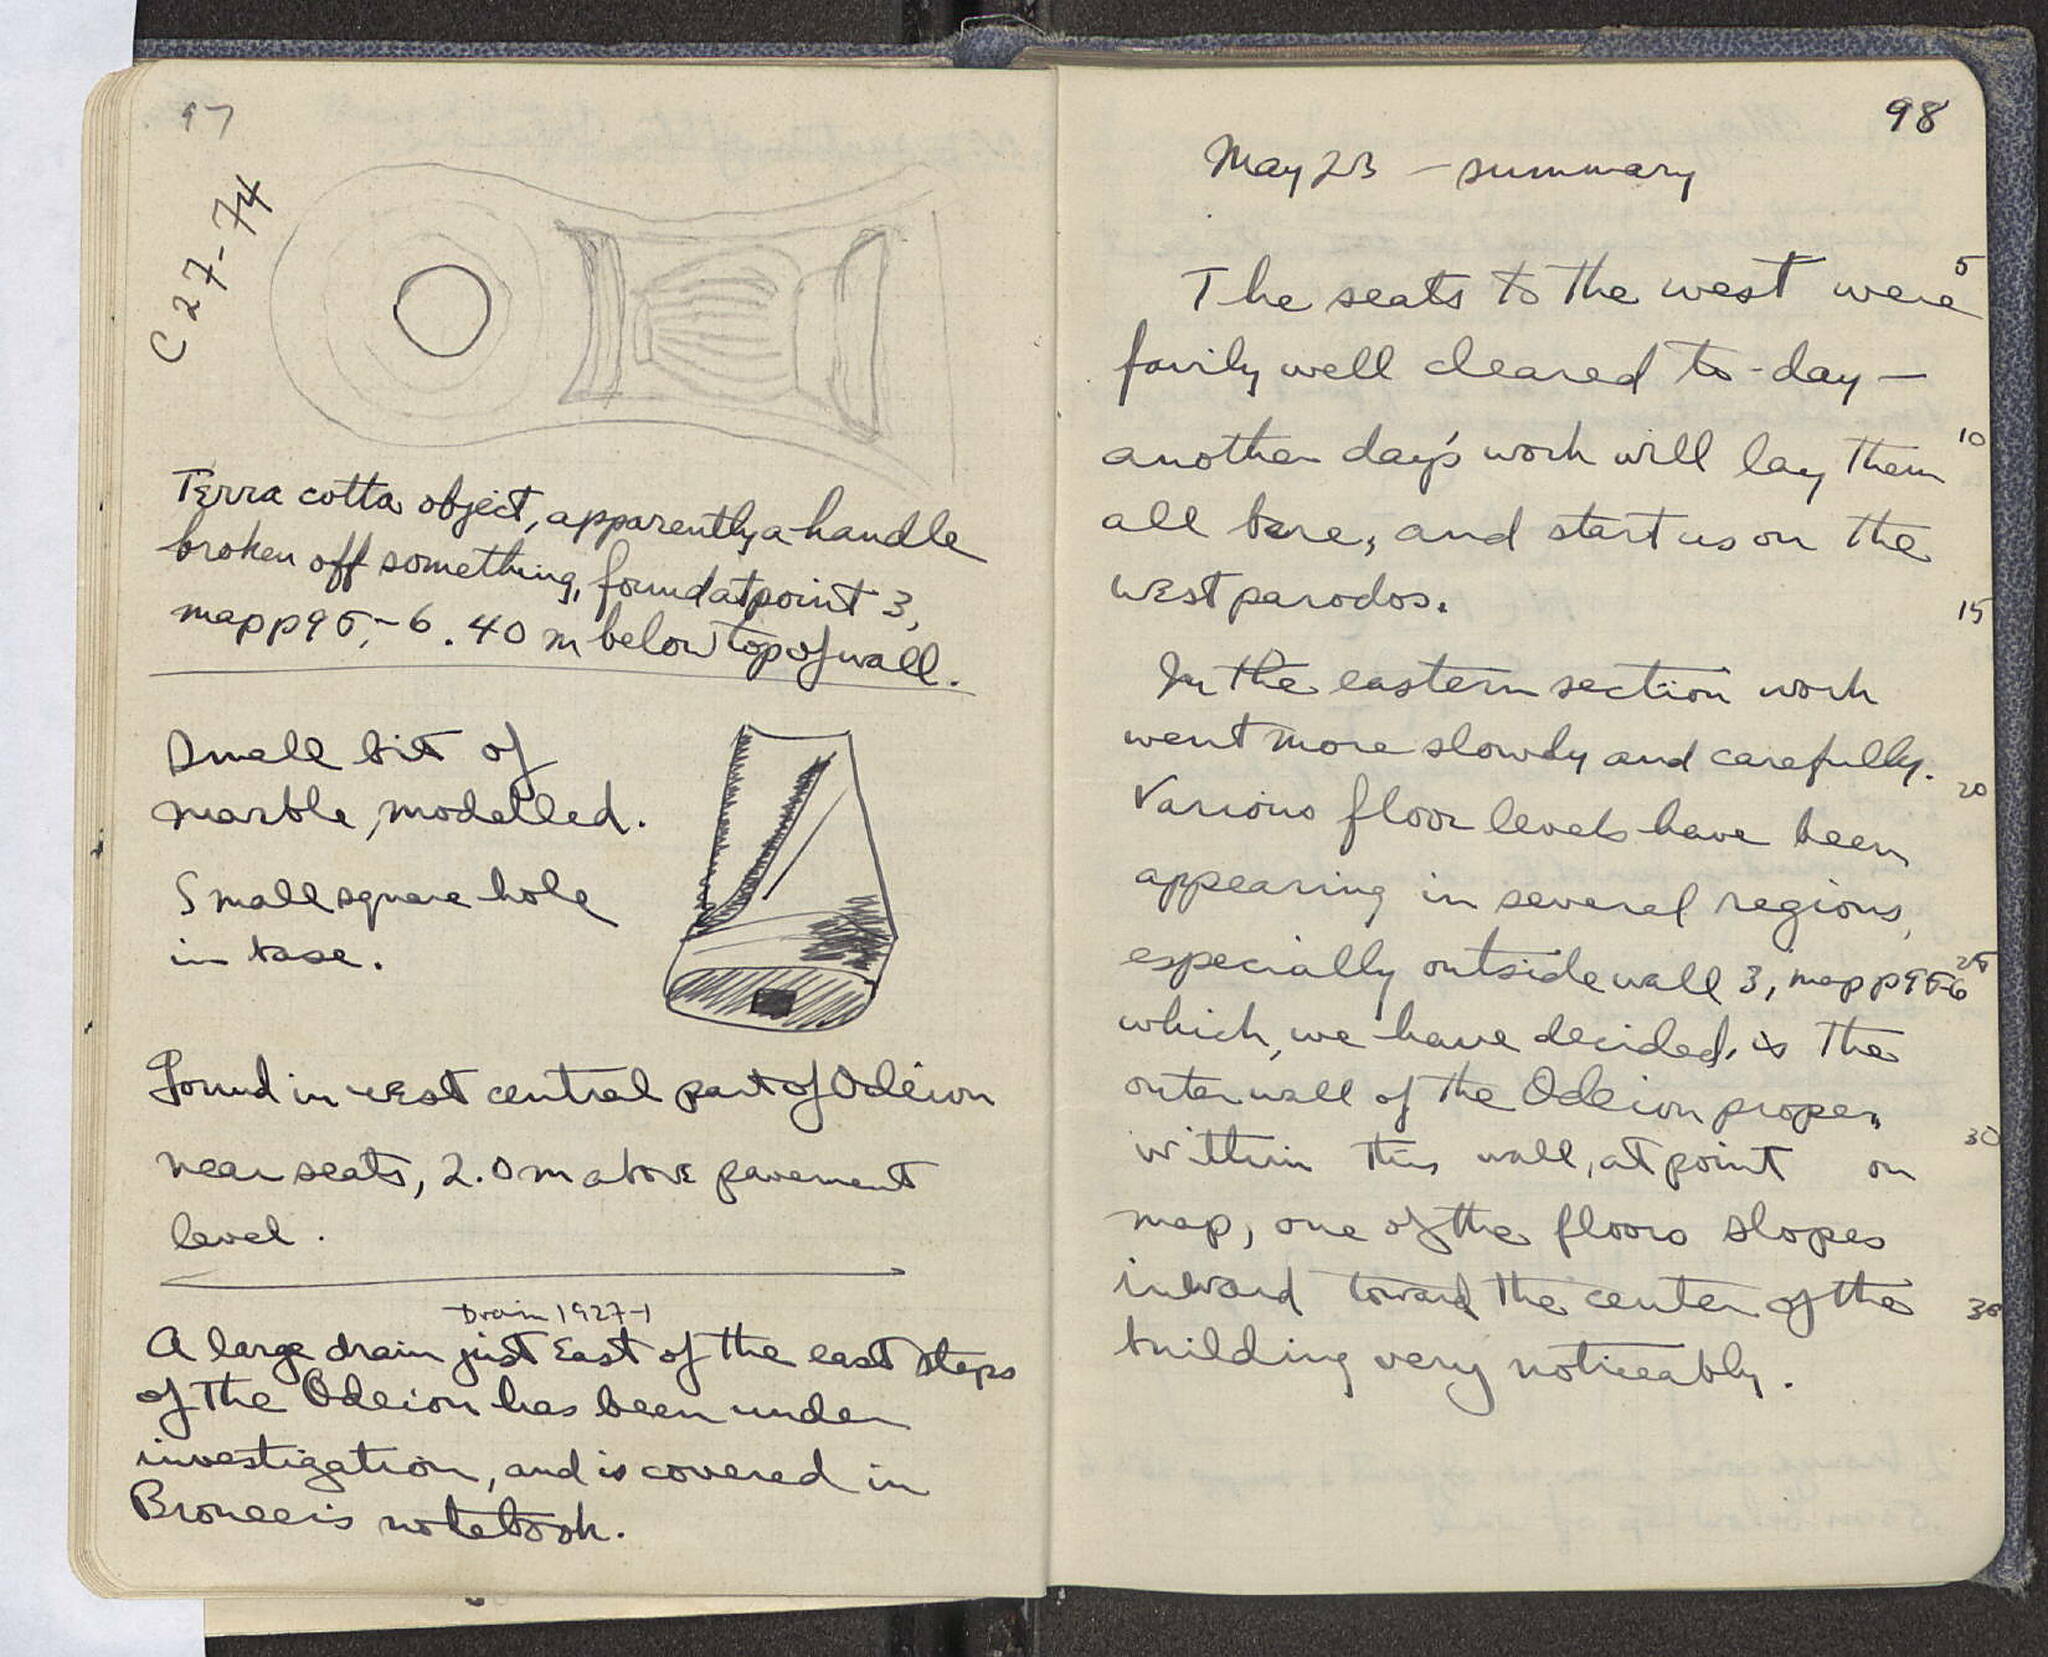 97
C 27-74
Terra cotta object, apparently a handle
broken off something, found at point 3,
map p 95-6. .40 m below top of wall.
Small bit of
marble, modelled.
Small square hole
in base.
Found in west central part of Odeion
near seats, 2.0 m above pavement
level.
Drain 1927-1
A large drain just East of the east steps
of the Odeion has been under
investigation, and is covered in
Broneer's notebook.
98
May 23 – summary
The seats to the west were
5
fairly well cleared to-day —
another day's work will lay them
10
all bare, and start us on the
west parodos.
15
In the eastern section work
went more slowly and carefully.
20
Various floor levels have been
appearing in several regions,
especially outside wall 3, map p 95-6
25
which, we have decided, is the
outer wall of the Odeion proper.
30
Within this wall, at point on
map, one of the floors slopes
inward toward the center of the
35
building very noticeably.